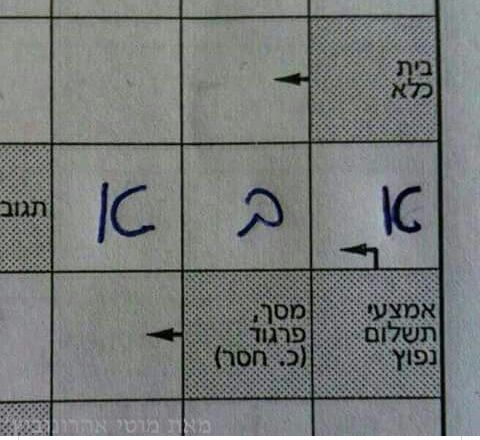 בית
כלא
א ב א
תגוב
אמצעי
תשלום
נפוץ
מסך,
פרגוד
(כ. חסר)
מאת מוטי אהרונוביץ